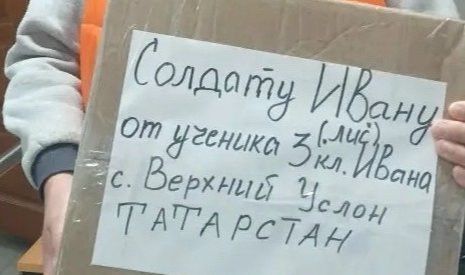 Солдату Ивану
(.лиц)
от ученика 3 кл. Ивана
с. Верхний Услон
ТАТАРСТАН